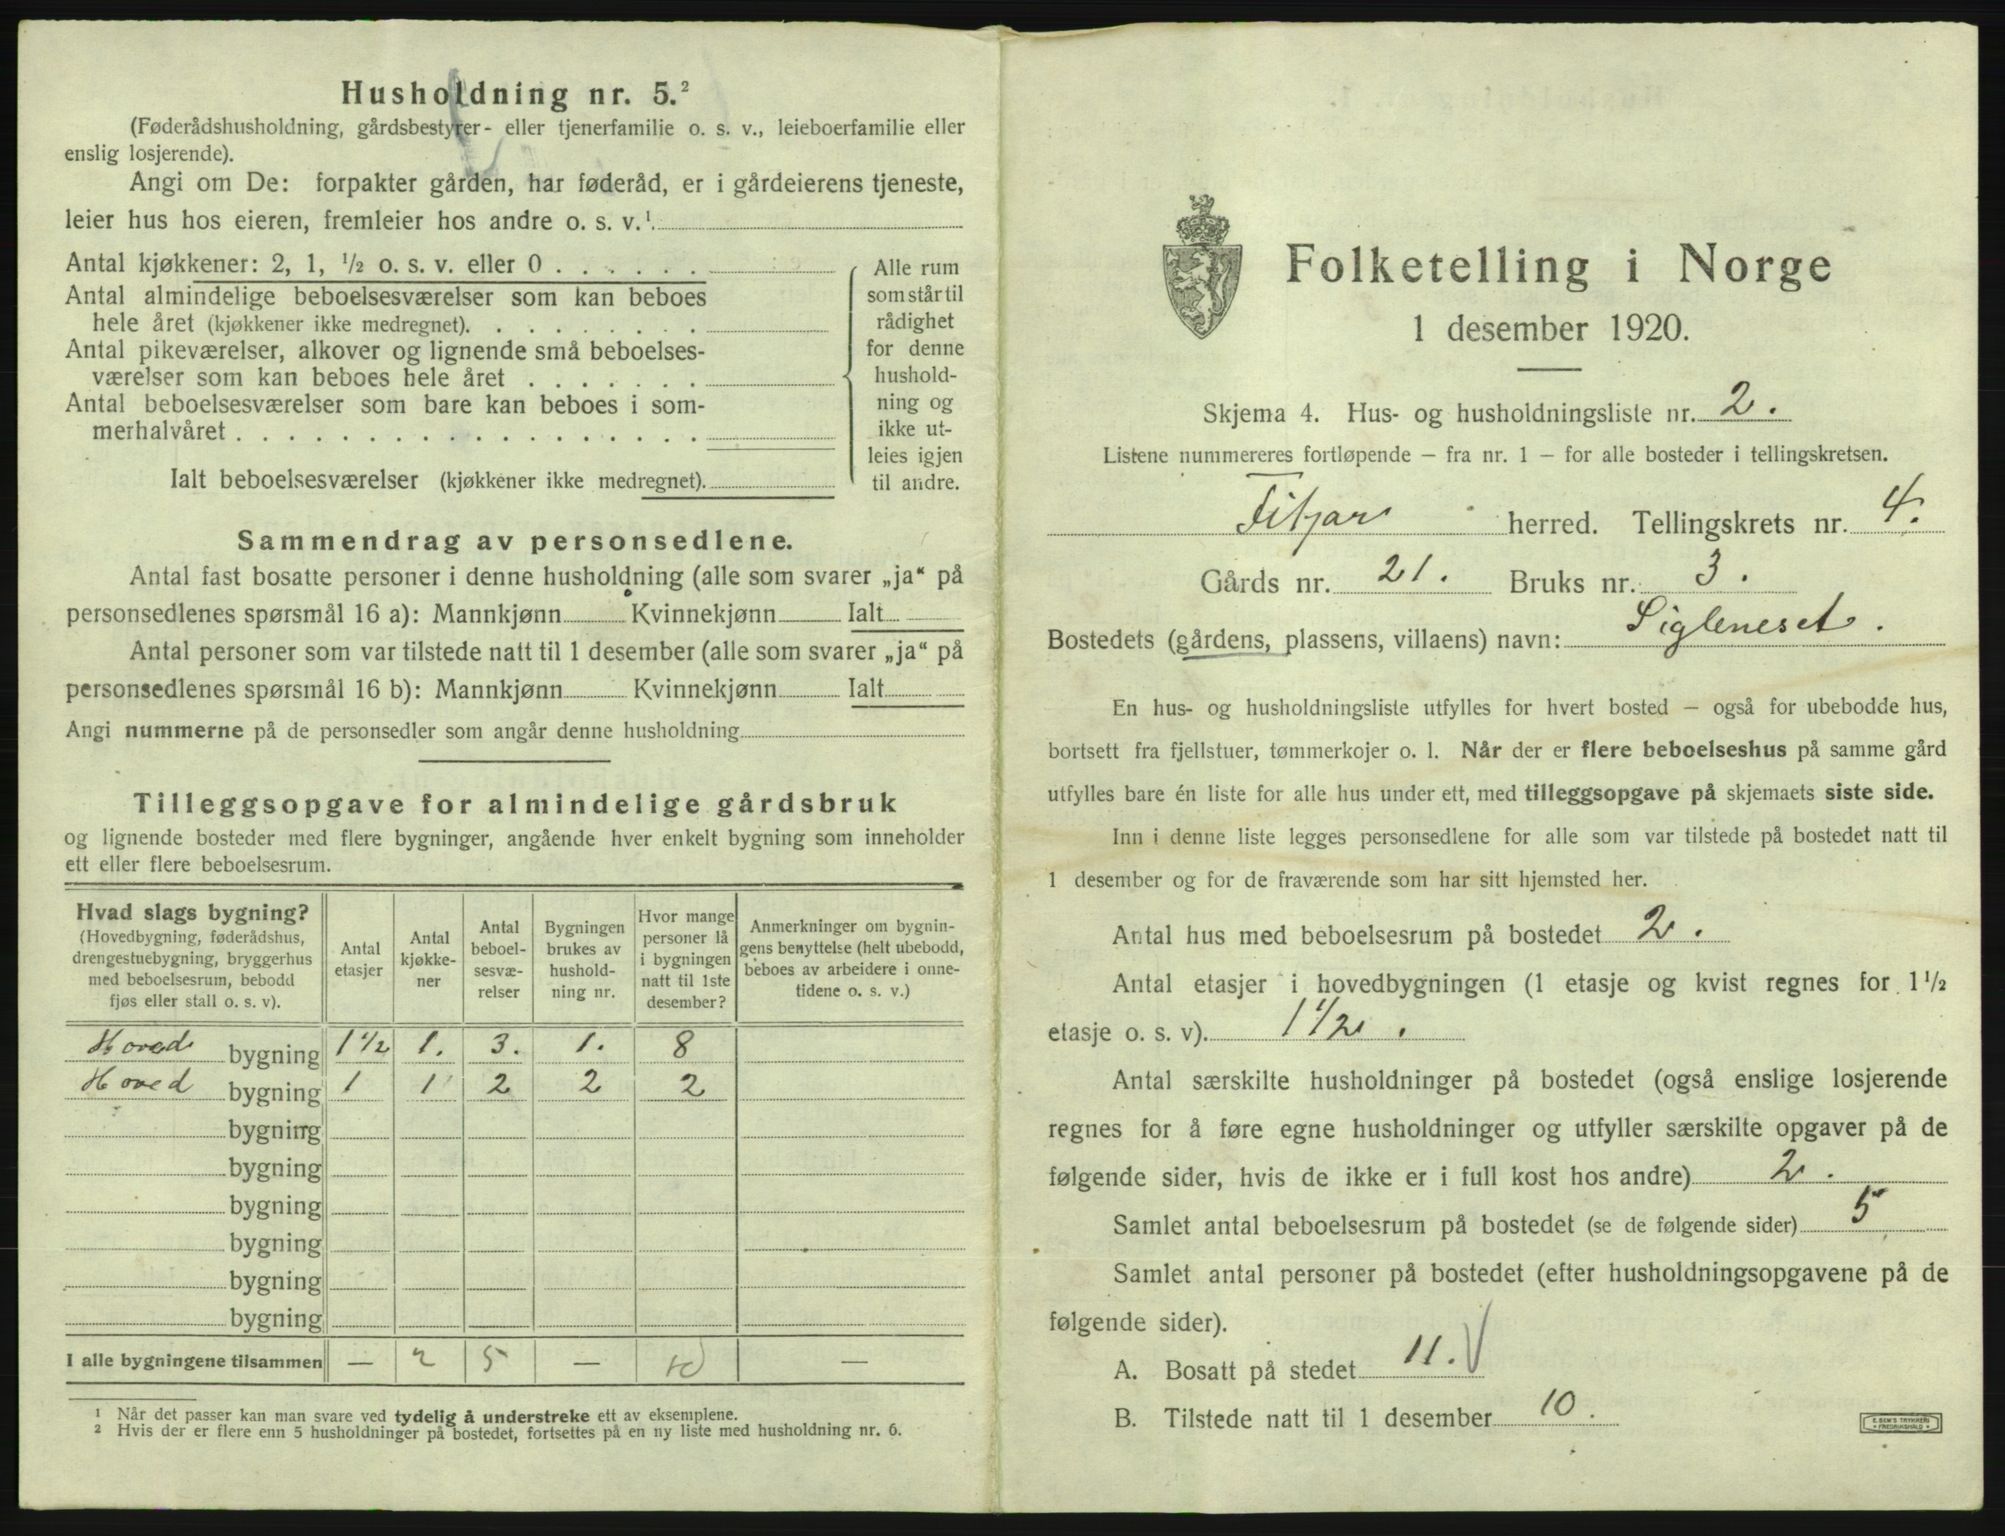 Husholdning nr. 5.²
(Føderådshusholdning, gårdsbestyrer- eller tjenerfamilie o. s. v., leieboerfamilie eller
enslig losjerende).
Angi om De: forpakter gården, har føderåd, er i gårdeierens tjeneste,
leier hus hos eieren, fremleier hos andre o. s. v.¹.
Antal kjøkkener: 2, 1, ½ o. s. v. eller 0 . . . . . .
Antal almindelige beboelsesværelser som kan beboes
hele året (kjøkkener ikke medregnet). . . . . . . . .
Antal pikeværelser, alkover og lignende små beboelses-
værelser som kan beboes hele året . . . . . . .
Antal beboelsesværelser som bare kan beboes i som-
merhalvåret . . . . . . . . . . . . . . . . . .
Ialt beboelsesværelser (kjøkkener ikke medregnet).
Alle rum
som står til
rådighet
for denne
hushold-
ning og
ikke ut-
leies igjen
til andre.
Sammendrag av personsedlene.
Antal fast bosatte personer i denne husholdning (alle som svarer „ja“ på
personsedlenes spørsmål 16 a): Mannkjønn Kvinnekjønn Ialt
Antal personer som var tilstede natt til 1 desember (alle som svarer „ja“ på
personsedlenes spørsmål 16 b): Mannkjønn Kvinnekjønn Ialt
Angi nummerne på de personsedler som angår denne husholdning
Tilleggsopgave for almindelige gårdsbruk
og lignende bosteder med flere bygninger, angående hver enkelt bygning som inneholder
ett eller flere beboelsesrum.
Hvad slags bygning?
(Hovedbygning, føderådshus,
drengestuebygning, bryggerhus
med beboelsesrum, bebodd
fjøs eller stall o. s. v).
Antal
etasjer
Antal
kjøkke-
ner
Antal
beboel-
sesvæ-
relser
Bygningen
brukes av
hushold-
ning nr.
Hvor mange
personer lå
i bygningen
natt til 1ste
desember?
Anmerkninger om bygnin-
gens benyttelse (helt ubebodd,
beboes av arbeidere i onne-
tidene o. s. v.)
Hoved bygning 1 ½ 1. 3. 1. 8
Hoved bygning 1 1 2 2 2
bygning
bygning
bygning
bygning
bygning
bygning
I alle bygningene tilsammen — 2 5 — 10 —
¹ Når det passer kan man svare ved tydelig å understreke ett av eksemplene.
² Hvis der er flere enn 5 husholdninger på bostedet, fortsettes på en ny liste med husholdning nr. 6.
Folketelling i Norge
1 desember 1920.
Skjema 4. Hus- og husholdningsliste nr. 2.
Listene nummereres fortløpende – fra nr. 1 – for alle bosteder i tellingskretsen.
Fitjar herred. Tellingskrets nr. 4.
Gårds nr. 21. Bruks nr. 3.
Bostedets (gårdens, plassens, villaens) navn: Sigleneset.
En hus- og husholdningsliste utfylles for hvert bosted – også for ubebodde hus,
bortsett fra fjellstuer, tømmerkojer o. l. Når der er flere beboelseshus på samme gård
utfylles bare én liste for alle hus under ett, med tilleggsopgave på skjemaets siste side.
Inn i denne liste legges personsedlene for alle som var tilstede på bostedet natt til
1 desember og for de fraværende som har sitt hjemsted her.
Antal hus med beboelsesrum på bostedet 2.
Antal etasjer i hovedbygningen (1 etasje og kvist regnes for 1½
etasje o. s. v). 1 ½.
Antal særskilte husholdninger på bostedet (også enslige losjerende
regnes for å føre egne husholdninger og utfyller særskilte opgaver på de
følgende sider, hvis de ikke er i full kost hos andre) 2.
Samlet antal beboelsesrum på bostedet (se de følgende sider) 5
Samlet antal personer på bostedet (efter husholdningsopgavene på de
følgende sider).
A. Bosatt på stedet 11.
B. Tilstede natt til 1 desember 10.
E. SEM'S TRYKKERI
FREDRIKSHALD